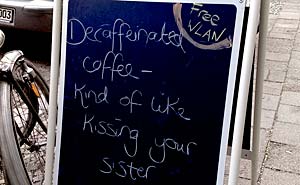 003
Free
VLAN
Decaffeinated
Coffee -
Kind of like
Kissing your
sister